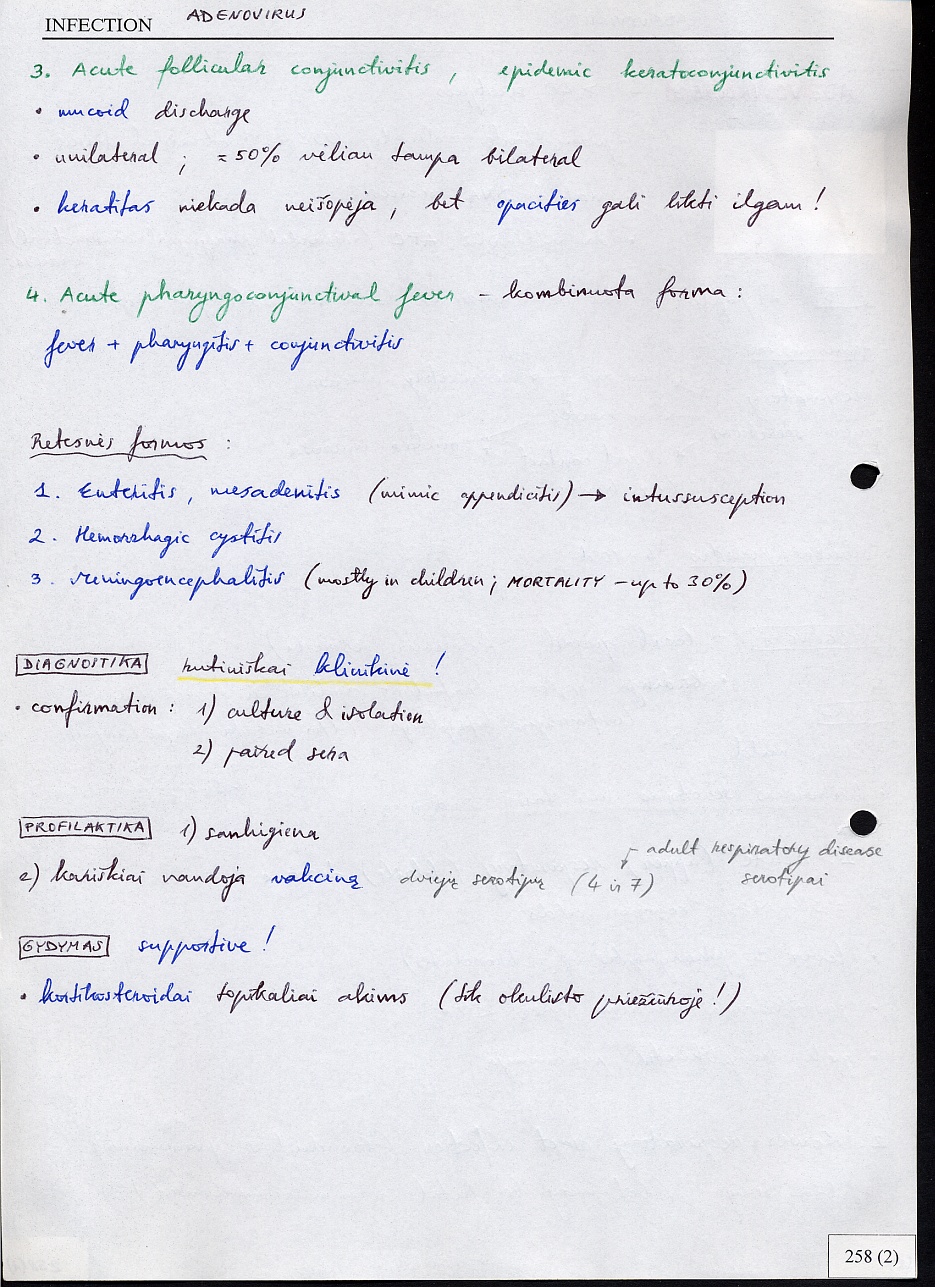 INFECTION ADENOVIRUS
3. Acute follicular conjunctivitis, epidemic keratoconjunctivitis
• mucoid discharge
• unilateral ; ≈ 50% vėliau tampa bilateral
• keratitas niekada neišopėja, bet opacities gali likti ilgam!
4. Acute pharyngoconjunctival fever – kombinuota forma:
fever + pharyngitis + conjunctivitis
Retesnės formos :
1. Enteritis, mesadenitis (mimic appendicitis) → intussusception
2. Hemorrhagic cystitis
3. Meningoencephalitis (mostly in children; MORTALITY – up to 30%)
DIAGNOSTIKA rutiniškai klinikinė !
• confirmation : 1) culture & isolation
2) paired sera
PROFILAKTIKA 1) sanhigiena
adult respiratory disease
2) kariškiai naudoja vakciną dviejų serotipų (4 ir 7) serotipai
GYDYMAS supportive !
• kortikosteroidai topikaliai akims (tik okulisto priežiūroje!)
258 (2)